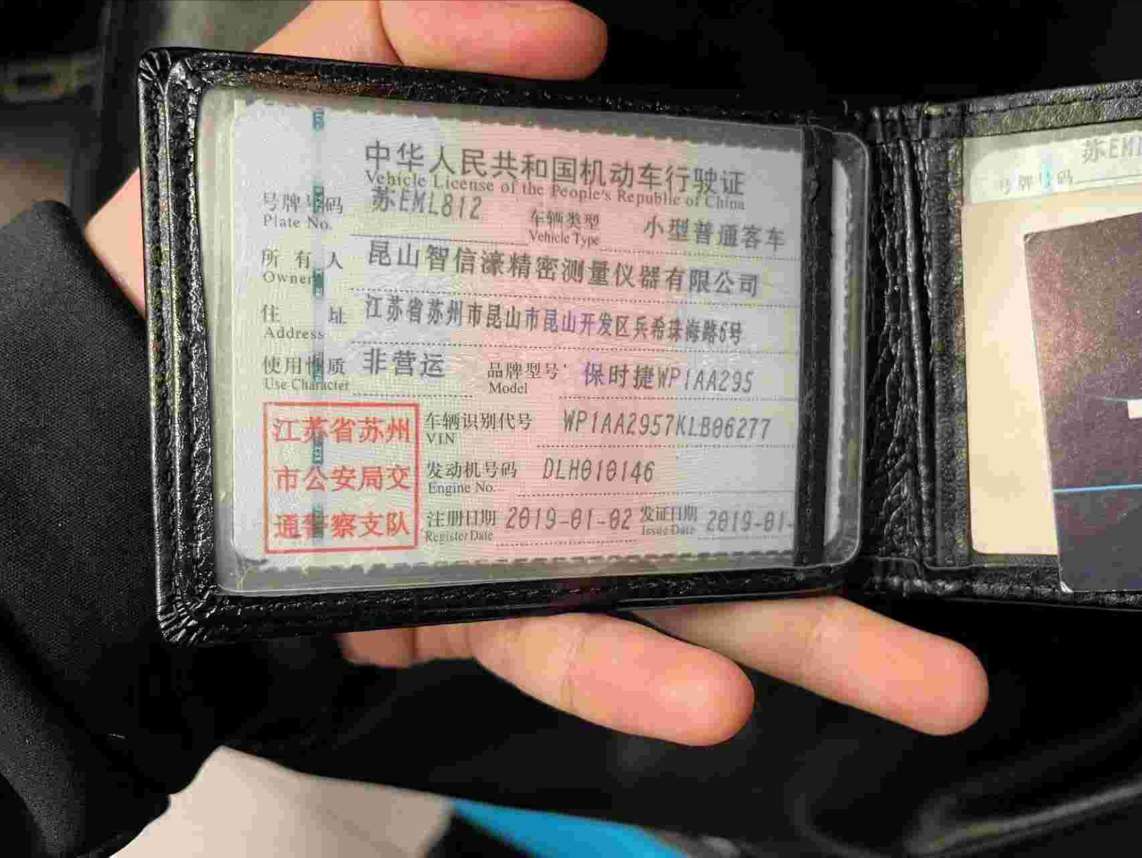 中华人民共和国机动车行驶证
Vehicle License of the People's Republic of China
号牌号码 苏EML812 车辆类型 小型普通客车
Plate No. Vehicle Type
所有人 昆山智信濠精密测量仪器有限公司
Owner
住址 江苏省苏州市昆山市昆山开发区兵希珠海路6号
Address
使用性质 非营运 品牌型号 保时捷WP1AA295
Use Character Model
车辆识别代号 WP1AA2957KLB06277
VIN
发动机号码 DLH010146
Engine No.
注册日期 2019-01-02 发证日期 2019-01-
Register Date Issue Date
江苏省苏州
市公安局交
通警察支队
苏EML
号牌号码